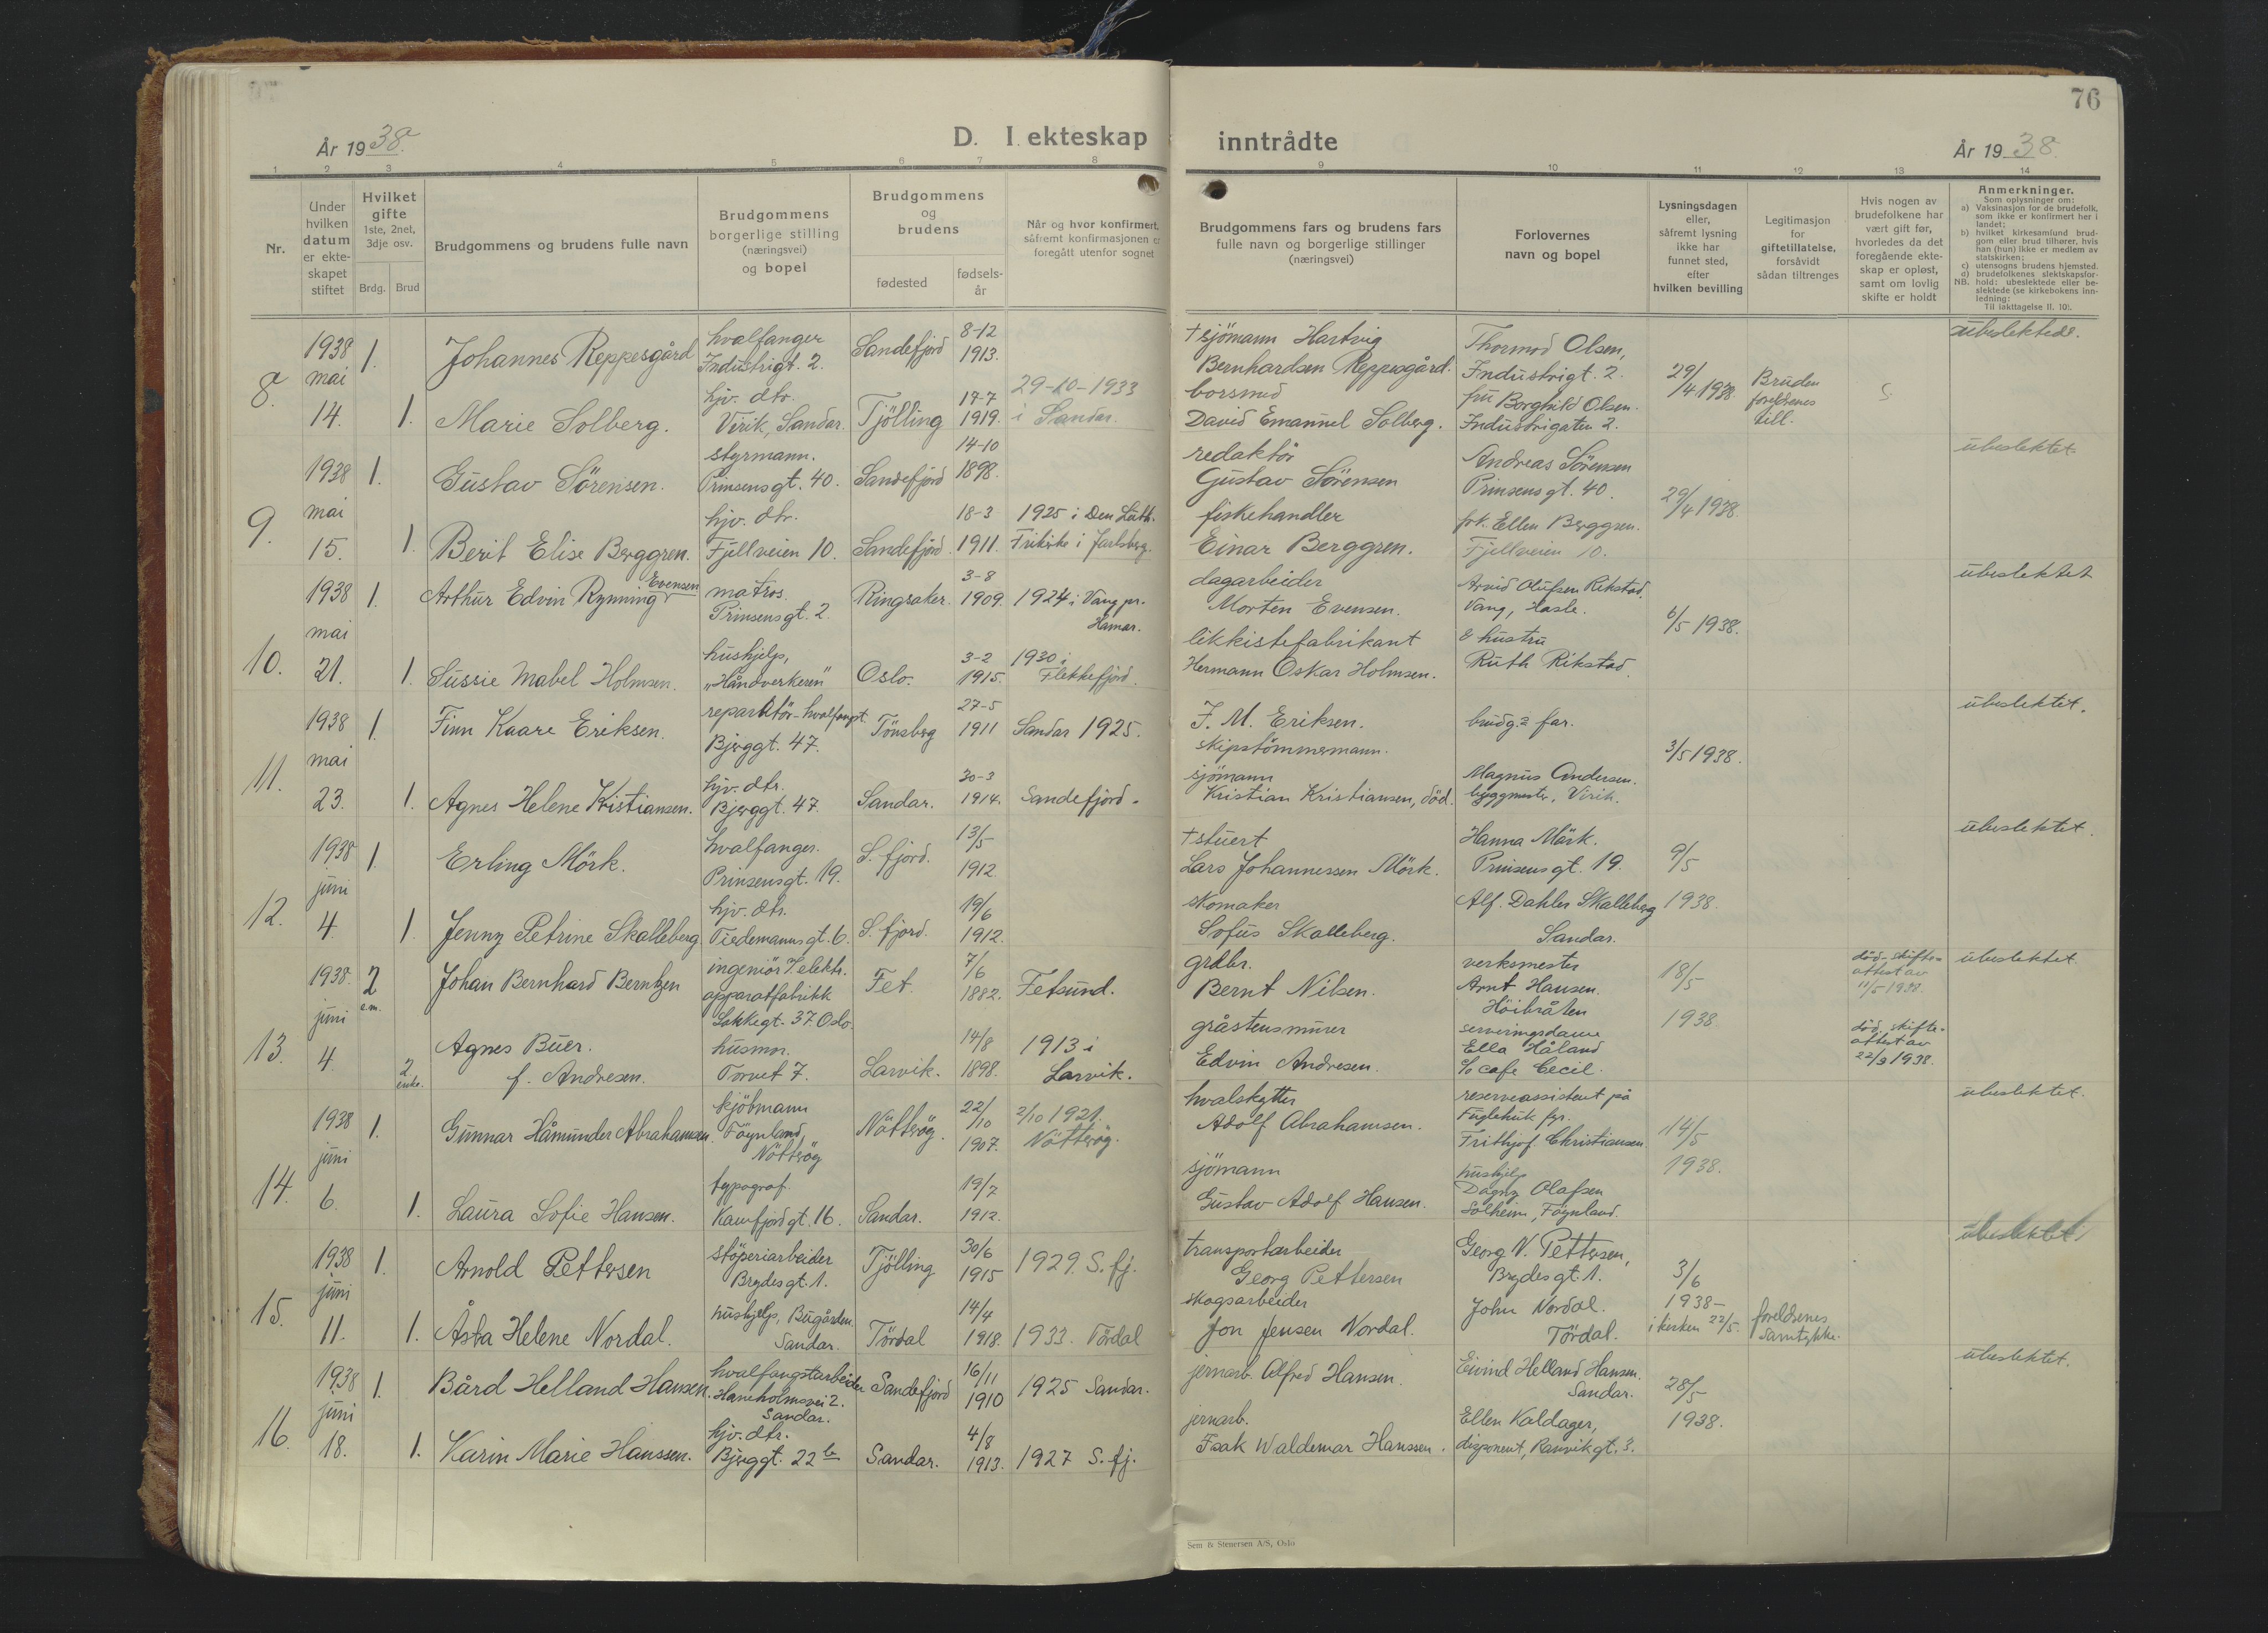 76
År 1938.
D. I ekteskap inntrådte
År 1938.
1 2 3 4 5 6 7 8 9 10 11 12 13 14
Nr.
Under hvilken datum er ekteskapet stiftet
Hvilket gifte 1ste, 2net, 3dje osv.
Brdg. Brud
Brudgommens og brudens fulle navn
Brudgommens borgerlige stilling (næringsvei) og bopel
Brudgommens og brudens
fødested
fødselsår
Når og hvor konfirmert, såfremt konfirmasjonen er foregått utenfor sognet
Brudgommens fars og brudens fars fulle navn og borgerlige stillinger (næringsvei)
Forlovernes navn og bopel
Lysningsdagen eller, såfremt lysning ikke har funnet sted, efter hvilken bevilling
Legitimasjon for giftetillatelse, forsåvidt sådan tiltrenges
Hvis nogen av brudefolkene har vært gift før, hvorledes da det foregående ekteskap er opløst, samt om lovlig skifte er holdt
Anmerkninger.
Som oplysninger om:
a) Vaksinasjon for de brudefolk, som ikke er konfirmert her i landet;
b) hvilket kirkesamfund brudgom eller brud tilhører, hvis han (hun) ikke er medlem av statskirken;
c) utensogns brudens hjemsted.
d) brudefolkenes slektskapsforhold: ubeslektede eller beslektede (se kirkebokens innledning:
NB. Til iakttagelse II. 10).
8. 1938 mai 14.
1. Johannes Reppesgård hvalfanger Industrigt. 2. Sandefjord 8-12 1913. † sjömann Hartvig Bernhardsen Reppesgård. Thormod Olsen, Industrigt. 2. 29/4 1938 Bruden foreldrenes till. ubeslektede.
1. Marie Solberg. hjv. dtr. Virik, Sandar. Tjölling 17-7 1919. 29-10-1933 i Sandar. borsmed David Emanuel Solberg. fru Borghild Olsen. Industrigaten 2.
9. 1938 mai 15.
1. Gustav Sörensen. styrmann. Prinsensgt. 40. Sandefjord 14-10 1898. redaktör Gustav Sörensen Andreas Sörensen Prinsensgt. 40. 29/4 1938. ubeslektet
1. Berit Elise Berggren. hjv. dtr. Fjellveien 10. Sandefjord. 18-3 1911. 1925 i Den Luth. Frikirke i Jarlsberg. fiskehandler Einar Berggren. frk. Ellen Berggren. Fjellveien 10.
10. 1938 mai 21.
1. Arthur Edvin Rynning Evensen matros. Prinsensgt. 2. Ringsaker. 3-8 1909. 1924 i Vang pr. Hamar. dagarbeider Morten Evensen. Arvid Olufsen Rikstad. Vang, Hasle. 6/5 1938. ubeslektet
1. Sussie Mabel Holmsen. hushjelp, "Håndverkeren" Oslo. 3-2 1915. 1930 i Flekkefjord. likkistefabrikant Hermann Oskar Holmsen. & hustru Ruth Rikstad.
11. 1938 mai 23.
1. Finn Kaare Eriksen. reparatör-hvalfangst. Bjerggt. 47. Tönsberg 27-5 1911 Sandar 1925. F. M. Eriksen. skipstömmermann. brudg.s far. 3/5 1938. ubeslektet.
1. Agnes Helene Kristiansen. hjv. dtr. Bjerggt. 47. Sandar. 30-3 1914. Sandefjord. sjömann Kristian Kristiansen, död. Magnus Andersen. byggmester, Virik.
12. 1938 juni 4.
1. Erling Mörk. hvalfanger. Prinsensgt. 19. S. fjord. 13/5 1912 † stuert Lars Johannessen Mörk. Hanna Mörk. Prinsensgt. 19. 9/5 1938. ubeslektet.
1. Jenny Petrine Skalleberg hjv. dtr. Tiedemannsgt. 6. S. fjord. 19/6 1912. skomaker Sofus Skalleberg. Alf. Dahler Skalleberg Sandar.
13. 1938. juni 4.
2 e.m. Johan Bernhard Berntzen ingeniör v. elektr. apparatfabrikk Lakkegt. 37 Oslo. Fet. 7/6 1882. Fetsund. grdbr. Bernt Nilsen. verksmester Arnt Hansen. Höibråten 18/5 1938 död - skifteattest av 11/5 1938. ubeslektet.
2 enke. Agnes Buer. f. Andresen. husmor. Torvet 7. Larvik. 14/8 1898. 1913 i Larvik. gråstensmurer Edvin Andresen. serveringsdame Ella Håland c/o cafe Cecil. död. skifteattest av 22/3 1938.
14. 1938 juni 6.
1. Gunnar Håmunder Abrahamsen. kjöbmann Föynland Nötteröy Nötteröy. 22/10 1907. 2/10 1921. Nötteröy. hvalskytter Adolf Abrahamsen. reserveassistent på Fuglehuk fyr. Frithjof Christiansen. 14/5 1938. ubeslektet.
1. Laura Sofie Hansen. typograf. Kamfjordgt. 16. Sandar. 19/7 1912. sjömann Gustav Adolf Hansen. hushjelp Dagny Olafsen Solheim, Föynland.
15. 1938 juni 11.
1. Arnold Pettersen stöperiarbeider Brydesgt. 1. Tjölling 30/6 1915 1929. S. fj. transportarbeider Georg Pettersen Georg V. Pettersen, Brydesgt. 1. 3/6 1938 - i kirken 22/5. ubeslektet
1. Åsta Helene Nordal. hushjelp, Bugården Sandar. Tördal 14/4 1918. 1933. Tördal skogsarbeider Jon Jensen Nordal. John Nordal. Tördal. foreldrenes samtykke.
16. 1938 juni 18.
1. Bård Helland Hansen. hvalfangstarbeider Haneholmsvei 2. Sandar. Sandefjord 16/11 1910 1925 Sandar. jernarb. Alfred Hansen. Eivind Helland Hansen. Sandar. 28/5 1938. ubeslektet.
1. Karin Marie Hanssen. hjv. dtr. Bjerggt. 22 b Sandar. 4/8 1913. 1927 S. fj. jernarb. Isak Waldemar Hanssen. Ellen Kaldager, disponent, Ranvikgt. 3.
Sem & Stenersen A/S, Oslo